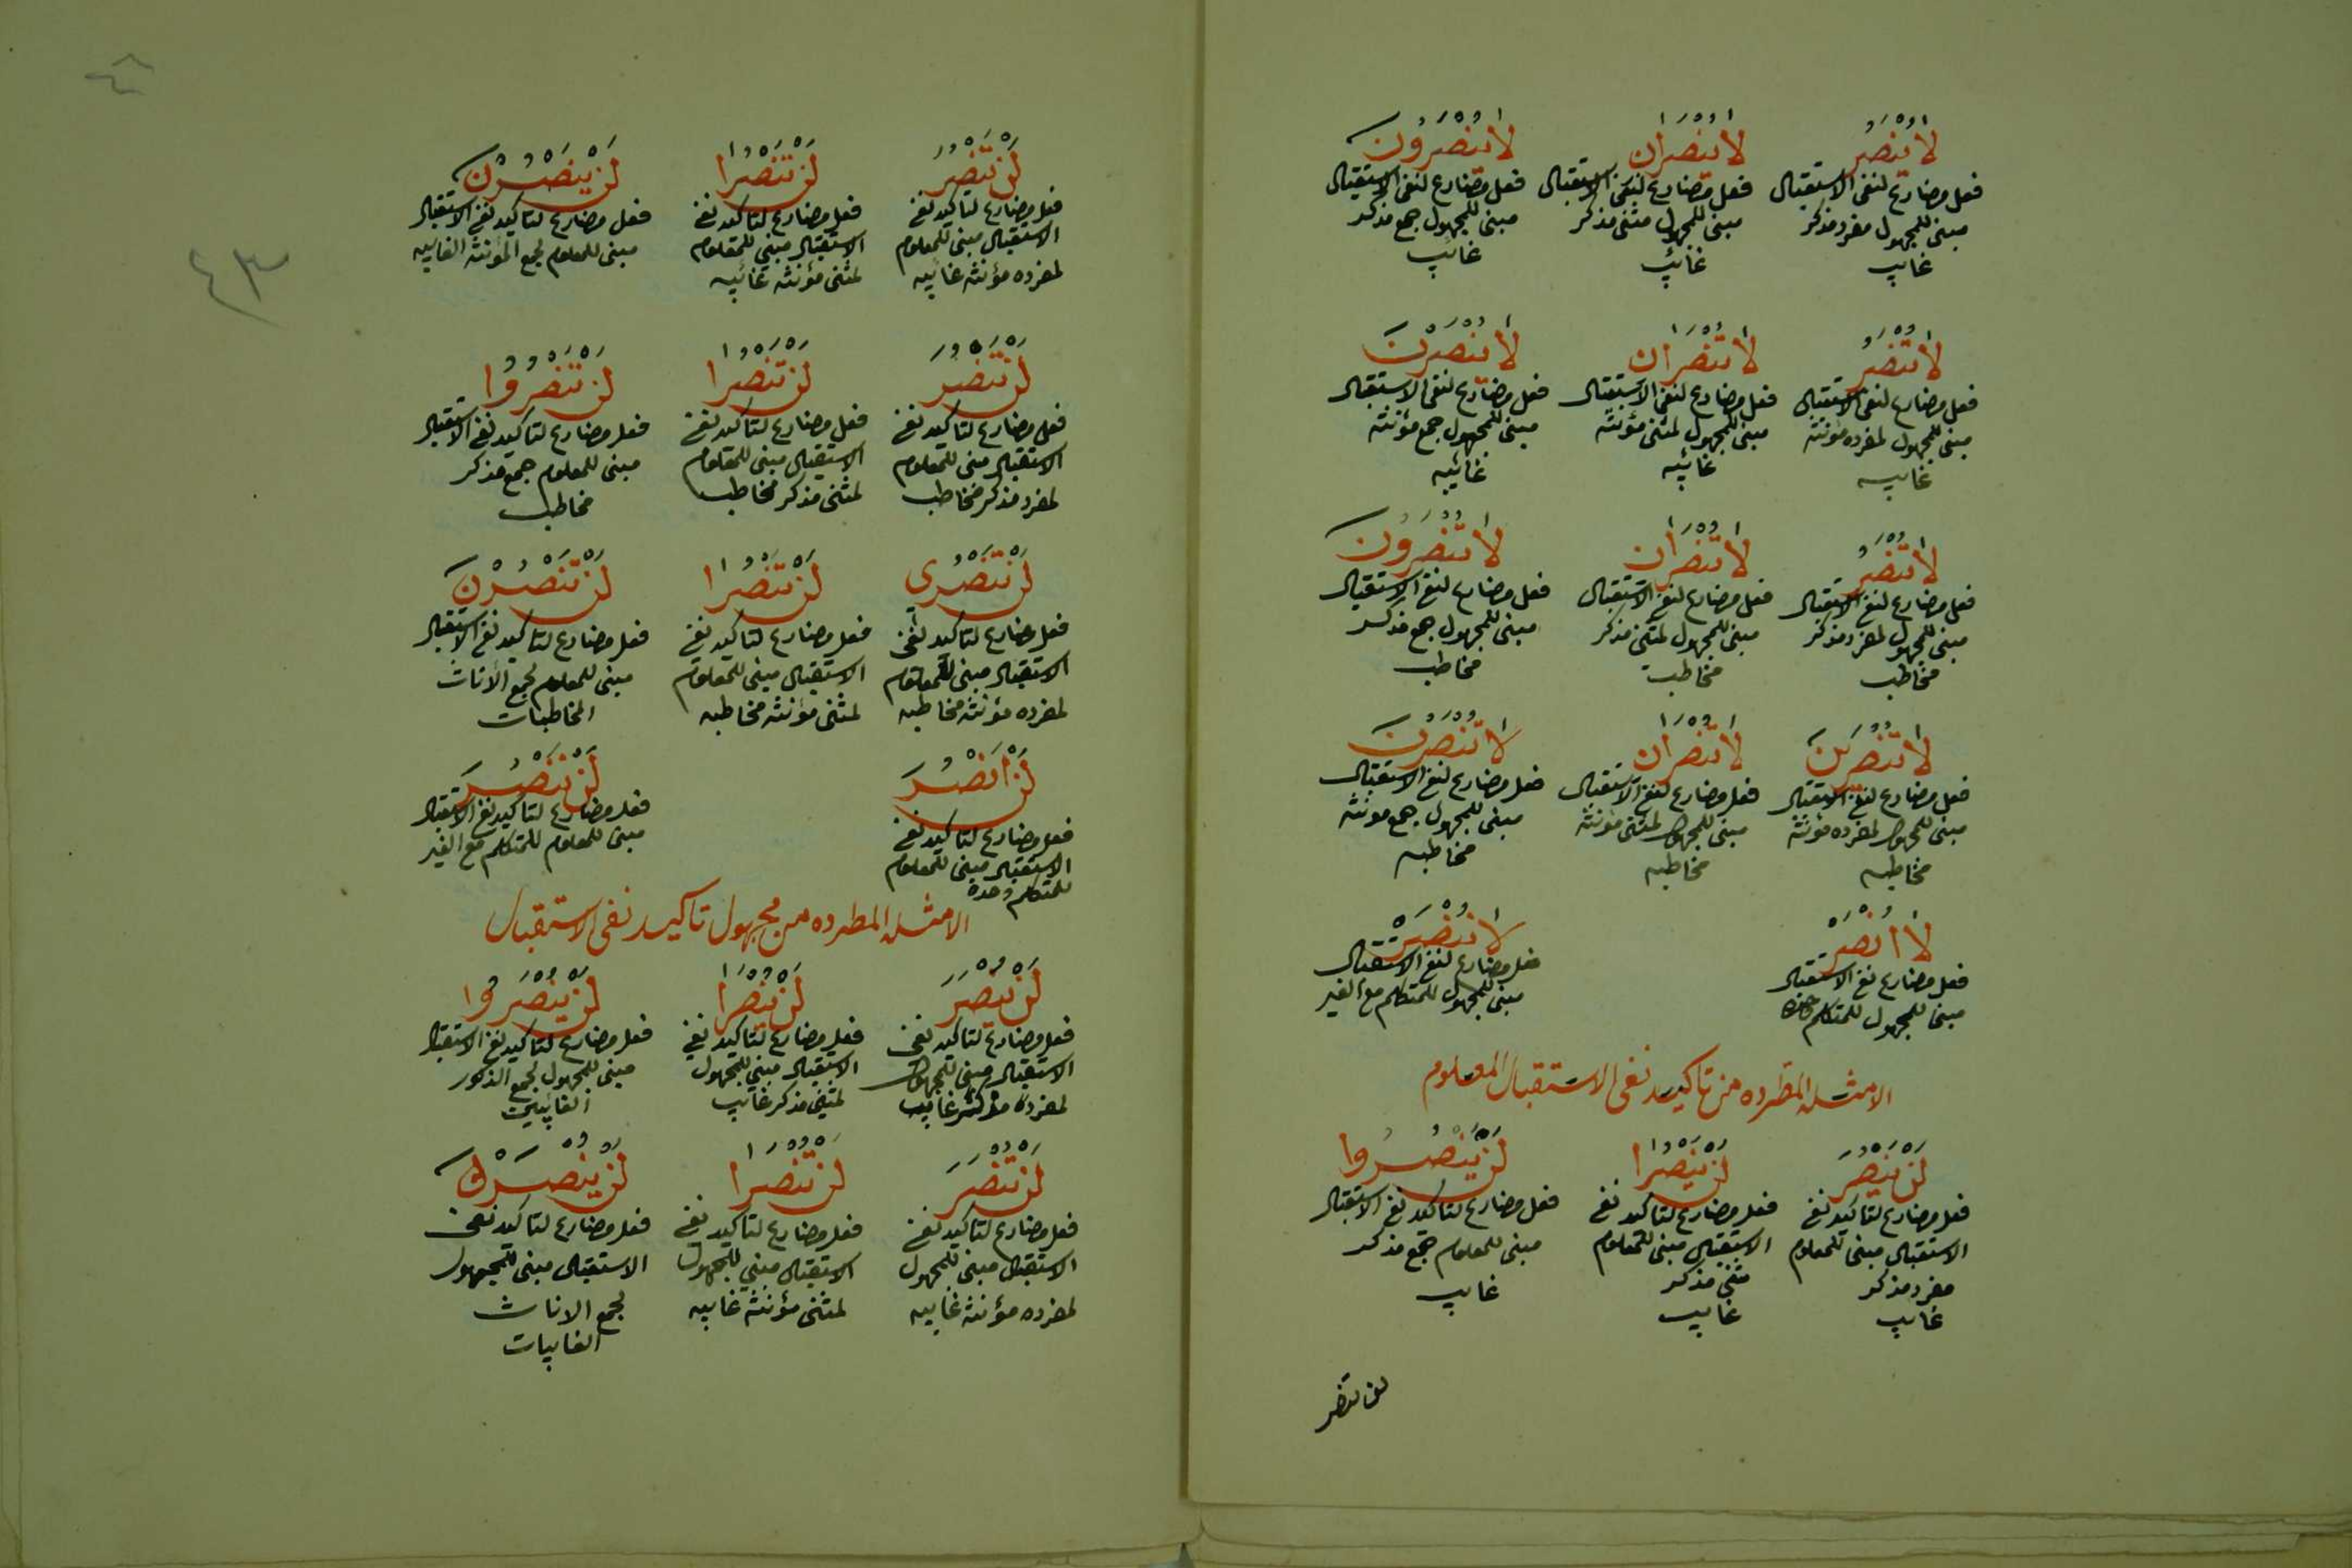 لا ينصر
فعل مضارع لنفى الاستقبال
مبنى للمجهول مفرد مذكر
غايب
لا ينصران
فعل مضارع لنفى الاستقبال
مبنى للمجهول مثنى مذكر
غائب
لا ينصرون
فعل مضارع لنفى الاستقبال
مبنى للمجهول جمع مذكر
غائب
لا تنصر
فعل مضارع لنفى الاستقبال
مبنى للمجهول لمفرده مؤنثه
غايبه
لا تنصران
فعل مضارع لنفى الاستقبال
مبنى للمجهول لمثنى مؤنثه
غائبه
لا ينصرن
فعل مضارع لنفى الاستقبال
مبنى للمجهول جمع مؤنثه
غائبه
لا تنصر
فعل مضارع لنفى الاستقبال
مبنى للمجهول لمفرد مذكر
مخاطب
لا تنصران
فعل مضارع لنفى الاستقبال
مبنى للمجهول لمثنى مذكر
مخاطب
لا تنصرون
فعل مضارع لنفى الاستقبال
مبنى للمجهول جمع مذكر
مخاطب
لا تنصرين
فعل مضارع لنفى الاستقبال
مبنى للمجهول لمفرده مؤنثه
مخاطبه
لا تنصران
فعل مضارع لنفى الاستقبال
مبنى للمجهول لمثنى مؤنثه
مخاطبه
لا تنصرن
فعل مضارع لنفى الاستقبال
مبنى للمجهول جمع مونثه
مخاطبه
لا انصر
فعل مضارع نفى الاستقبال
مبنى للمجهول للمتكلم وحده
لا ننصر
فعل مضارع لنفى الاستقبال
مبنى للمجهول للمتكلم مع الغير
الامثله المطرده من تاكيد نفى الاستقبال المعلوم
لن ينصر
فعل مضارع لتاكيد نفى
الاستقبال مبنى للمعلوم
مفرد مذكر
غايب
لن ينصرا
فعل مضارع لتاكيد نفى
الاستقبال مبنى للمعلوم
مثنى مذكر
غايب
لن ينصروا
فعل مضارع لتاكيد نفى الاستقبال
مبنى للمعلوم جمع مذكر
غايب
لن تنصر
٤٣
لن تنصر
فعل مضارع لتاكيد نفى
الاستقبال مبنى للمعلوم
لمفرده مؤنثه غايبه
لن تنصرا
فعل مضارع لتاكيد نفى
الاستقبال مبنى للمعلوم
لمثنى مؤنثه غائبه
لن ينصرن
فعل مضارع لتاكيد نفى الاستقبال
مبنى للمعلوم لجمع المؤنثه الغايبه
لن تنصر
فعل مضارع لتاكيد نفى
الاستقبال مبنى للمعلوم
لمفرد مذكر مخاطب
لن تنصرا
فعل مضارع لتاكيد نفى
الاستقبال مبنى للمعلوم
لمثنى مذكر مخاطب
لن تنصروا
فعل مضارع لتاكيد نفى الاستقبال
مبنى للمعلوم جمع مذكر
مخاطب
لن تنصرى
فعل مضارع لتاكيد نفى
الاستقبال مبنى للمعلوم
لمفرده مؤنثه مخاطبه
لن تنصرا
فعل مضارع لتاكيد نفى
الاستقبال مبنى للمعلوم
لمثنى مؤنثه مخاطبه
لن تنصرن
فعل مضارع لتاكيد نفى الاستقبال
مبنى للمعلوم لجمع الأناث
المخاطبات
لن انصر
فعل مضارع لتاكيد نفى
الاستقبال مبنى للمعلوم
للمتكلم وحده
لن ننصر
فعل مضارع لتاكيد نفى الاستقبال
مبنى للمعلوم للمتكلم مع الغير
الامثله المطرده من مجهول تاكيد نفى الاستقبال
لن ينصر
فعل مضارع لتاكيد نفى
الاستقبال مبنى للمجهول
لمفرده مذكر غايب
لن ينصرا
فعل مضارع لتاكيد نفى
الاستقبال مبنى للمجهول
لمثنى مذكر غائب
لن ينصروا
فعل مضارع لتاكيد نفى الاستقبال
مبنى للمجهول لجمع الذكور
الغائبين
لن تنصر
فعل مضارع لتاكيد نفى
الاستقبال مبنى للمجهول
لمفرده مؤنثه غايبه
لن تنصرا
فعل مضارع لتاكيد نفى
الاستقبال مبنى للمجهول
لمثنى مؤنثه غايبه
لن ينصرن
فعل مضارع لتاكيد نفى
الاستقبال مبنى للمجهول
لجمع الاناث
الغايبات